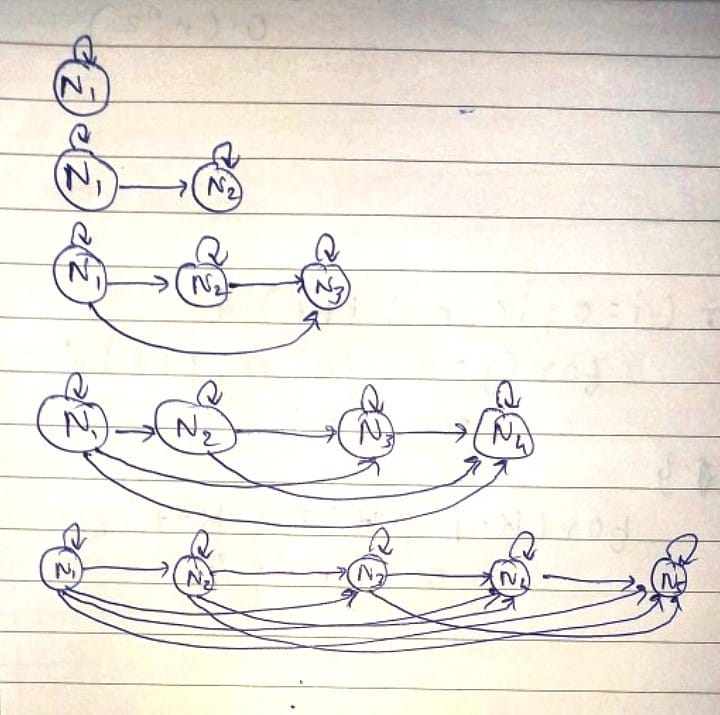 N1
N1 N2
N1 N2 N3
N1 N2 N3 N4
N1 N2 N3 N4 N5